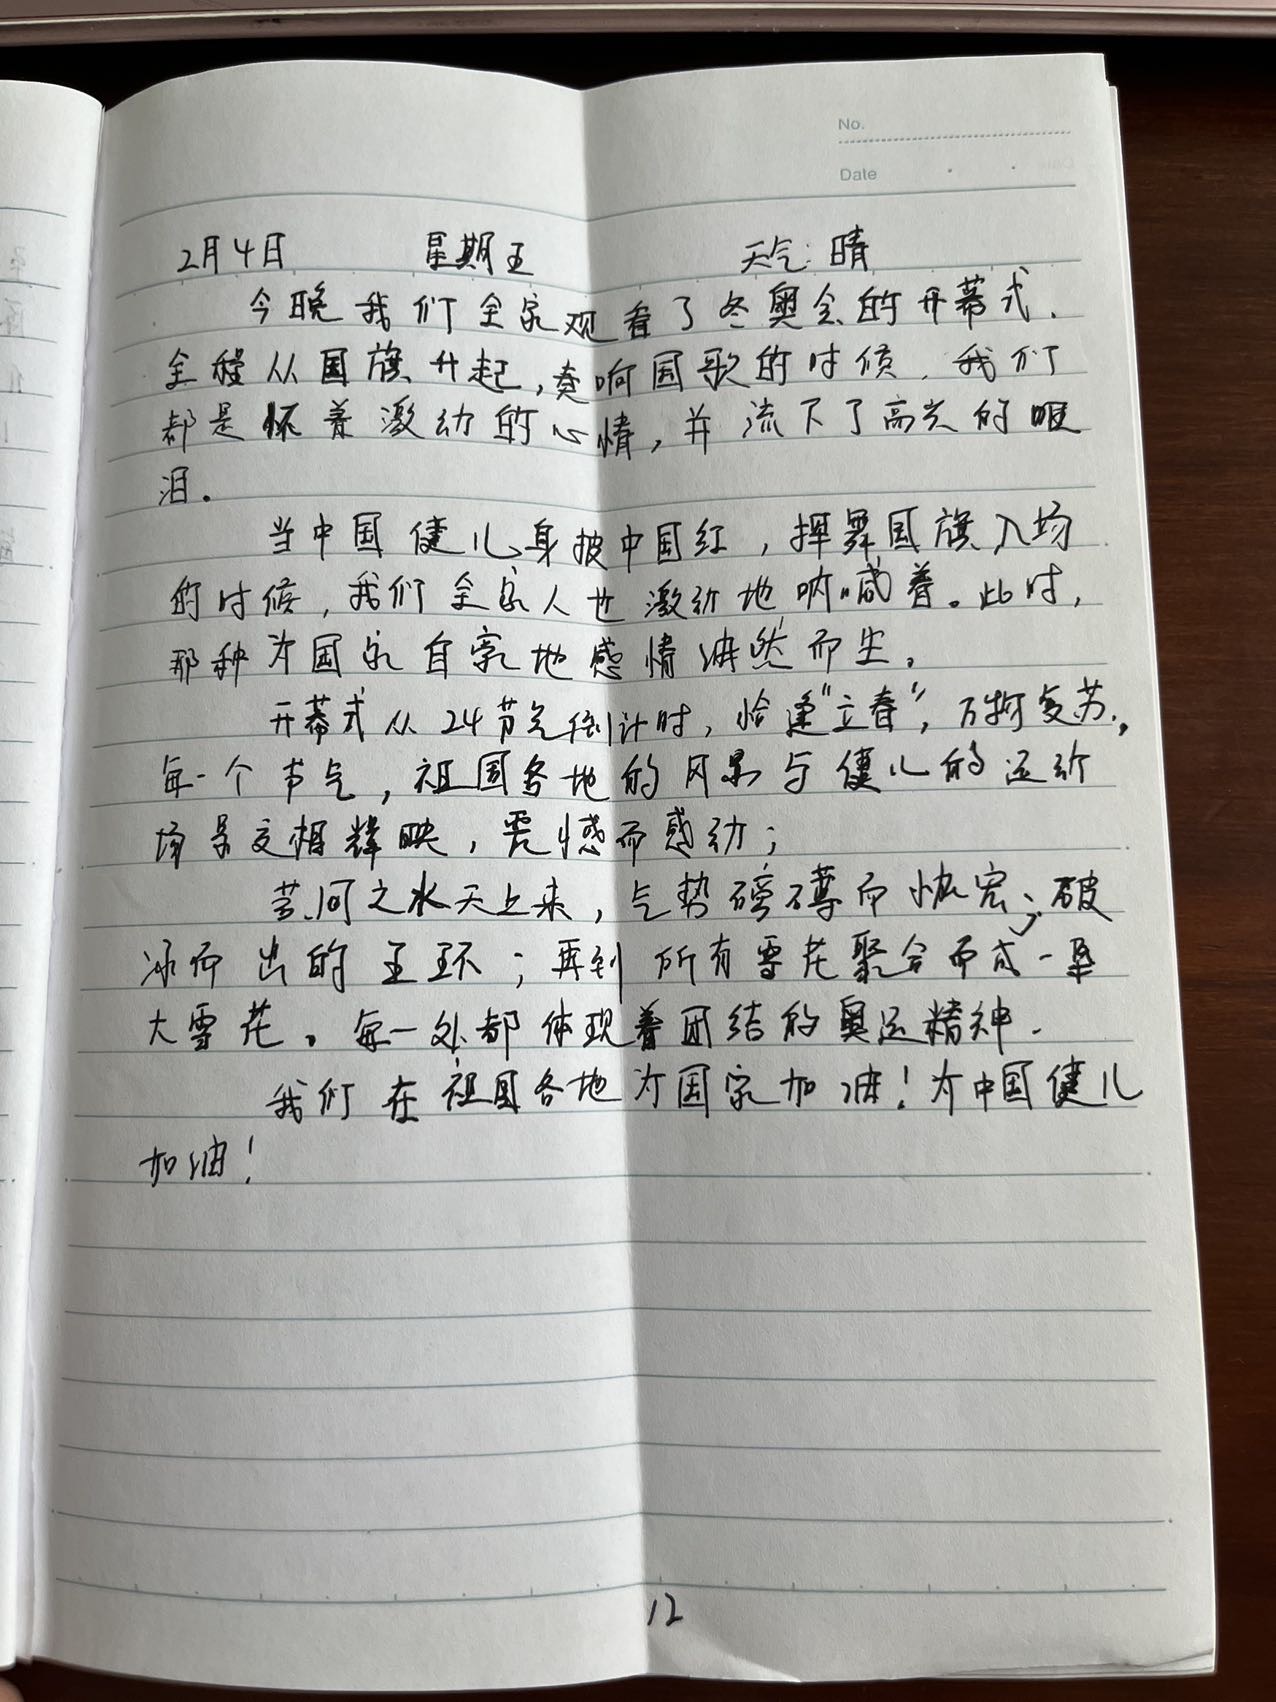 No.
Date
2月4日 星期五 天气:晴
今晚我们全家观看了冬奥会的开幕式.
全程从国旗升起,奏响国歌的时候,我们
都是怀着激动的心情,并流下了高兴的眼
泪。
当中国健儿身披中国红,挥舞国旗入场
的时候,我们全家人也激动地呐喊着。此时,
那种为国家自豪地感情油然而生。
开幕式从24节气倒计时,恰逢"立春",万物复苏,
每一个节气,祖国各地的风景与健儿的运动
场景交相辉映,震憾而感动;
黄河之水天上来,气势磅礴而恢宏、破
冰而出的五环;再到所有雪花聚合而成一朵
大雪花。每一处都体现着团结的奥运精神.
我们在祖国各地为国家加油!为中国健儿
加油!
12